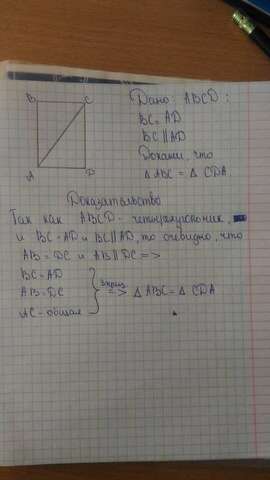 B
C
A
D
Дано: ABCD:
BC = AD
BC || AD
Докажи, что
Δ ABC = Δ CDA
Доказательство
Так как ABCD - четырехугольник,
и BC = AD и BC || AD, то очевидно, что
AB = DC и AB || DC =>
BC = AD
AB = DC
AC - общая
3 приз
=> Δ ABC = Δ CDA